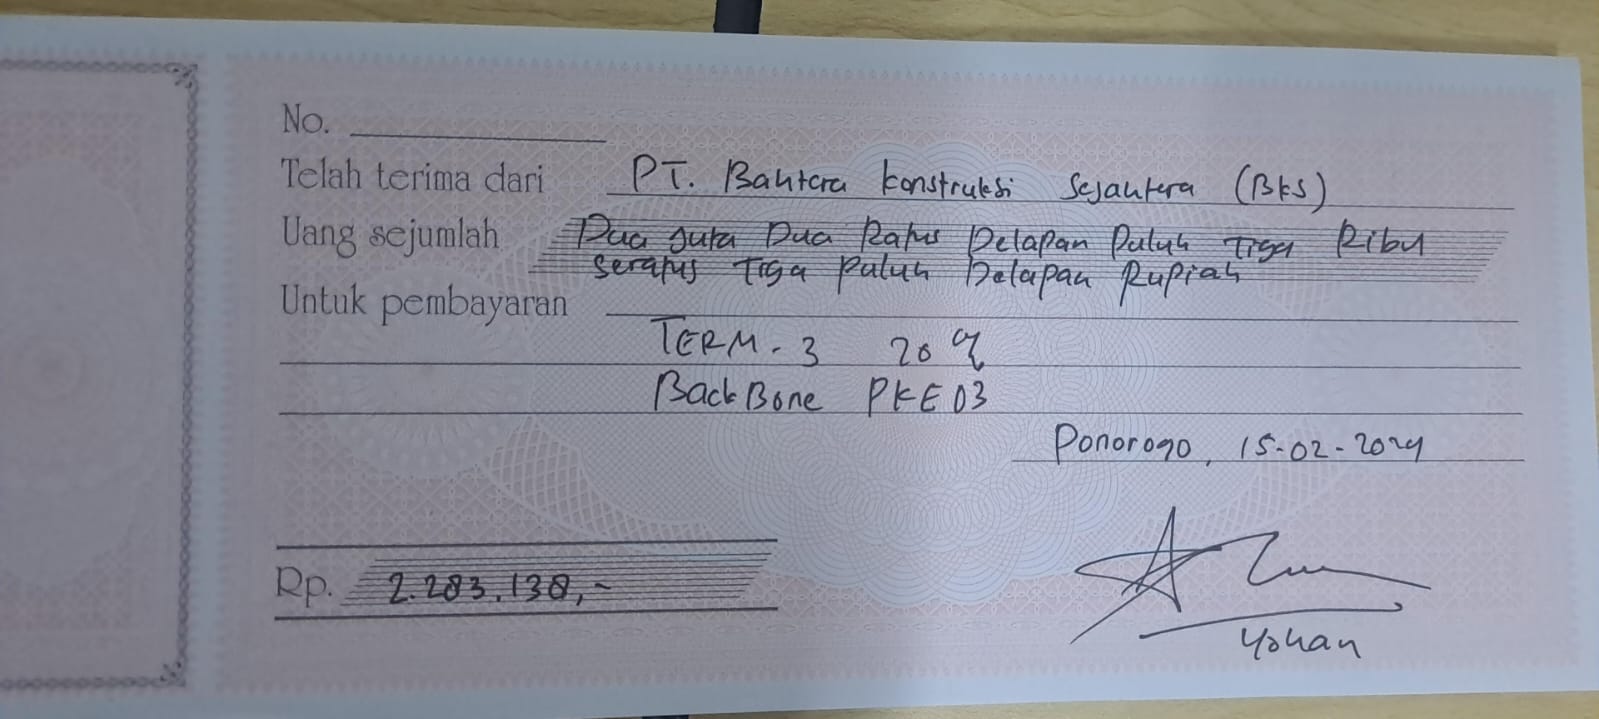 No.
Telah terima dari PT. Bahtera Konstruksi Sejahtera (BKS)
Uang sejumlah Dua Juta Dua Ratus Delapan Puluh Tiga Ribu
Seratus Tiga Puluh Delapan Rupiah
Untuk pembayaran
TERM-3 20%
BackBone PKE03
Ponorogo, 15-02-2024
Rp. 2.283.138,-
Yohan